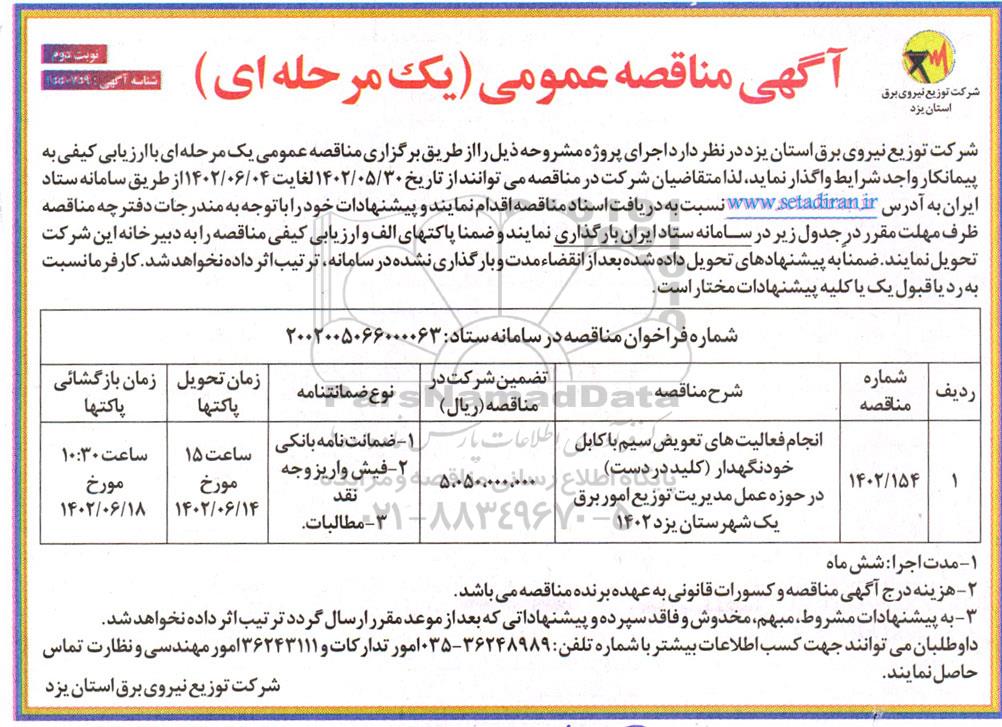 آگهی مناقصه عمومی (یک مرحله ای)
نوبت دوم
شناسه آگهی:
شرکت توزیع نیروی برق
استان یزد
شرکت توزیع نیروی برق استان یزد در نظر دارد اجرای پروژه مشروحه ذیل را از طریق برگزاری مناقصه عمومی یک مرحله ای با ارزیابی کیفی به
پیمانکار واجد شرایط واگذار نماید، لذا متقاضیان شرکت در مناقصه می توانند از تاریخ ۱۴۰۲/۰۵/۳۰ لغایت ۱۴۰۲/۰۶/۰۴ از طریق سامانه ستاد
ایران به آدرس www.setadiran.ir نسبت به دریافت اسناد مناقصه اقدام نمایند و پیشنهادات خود را با توجه به مندرجات دفترچه مناقصه
ظرف مهلت مقرر در جدول زیر در سامانه ستاد ایران بارگذاری نمایند و ضمنا پاکتهای الف و ارزیابی کیفی مناقصه را به دبیرخانه این شرکت
تحویل نمایند. ضمنا به پیشنهادهای تحویل داده شده بعد از انقضاء مدت و بارگذاری نشده در سامانه، ترتیب اثر داده نخواهد شد. کارفرما نسبت
به رد یا قبول یک یا کلیه پیشنهادات مختار است.
شماره فراخوان مناقصه در سامانه ستاد: ۲۰۰۲۰۰۵۰۶۶۰۰۰۰۶۳
ردیف
شماره مناقصه
شرح مناقصه
تضمین شرکت در مناقصه (ریال)
نوع ضمانتنامه
زمان تحویل پاکتها
زمان بازگشائی پاکتها
۱
۱۴۰۲/۱۵۴
انجام فعالیت های تعویض سیم با کابل
خودنگهدار (کلید در دست)
در حوزه عمل مدیریت توزیع امور برق
یک شهرستان یزد ۱۴۰۲
۵.۰۵۰.۰۰۰.۰۰۰
۱-ضمانت نامه بانکی
۲-فیش واریز وجه
نقد
۳-مطالبات.
ساعت ۱۵
مورخ
۱۴۰۲/۰۶/۱۴
ساعت ۱۰:۳۰
مورخ
۱۴۰۲/۰۶/۱۸
ParsNamadData
پایگاه اطلاع رسانی مناقصه و مزایده
۰۲۱-۸۸۳۴۹۶۷۰-۵
۱-مدت اجرا: شش ماه
۲-هزینه درج آگهی مناقصه و کسورات قانونی به عهده برنده مناقصه می باشد.
۳-به پیشنهادات مشروط، مبهم، مخدوش و فاقد سپرده و پیشنهاداتی که بعد از موعد مقرر ارسال گردد ترتیب اثر داده نخواهد شد.
داوطلبان می توانند جهت کسب اطلاعات بیشتر با شماره تلفن: ۳۶۲۴۸۹۸۹-۰۳۵ امور تدارکات و ۳۶۲۴۳۱۱۱ امور مهندسی و نظارت تماس
حاصل نمایند.
شرکت توزیع نیروی برق استان یزد